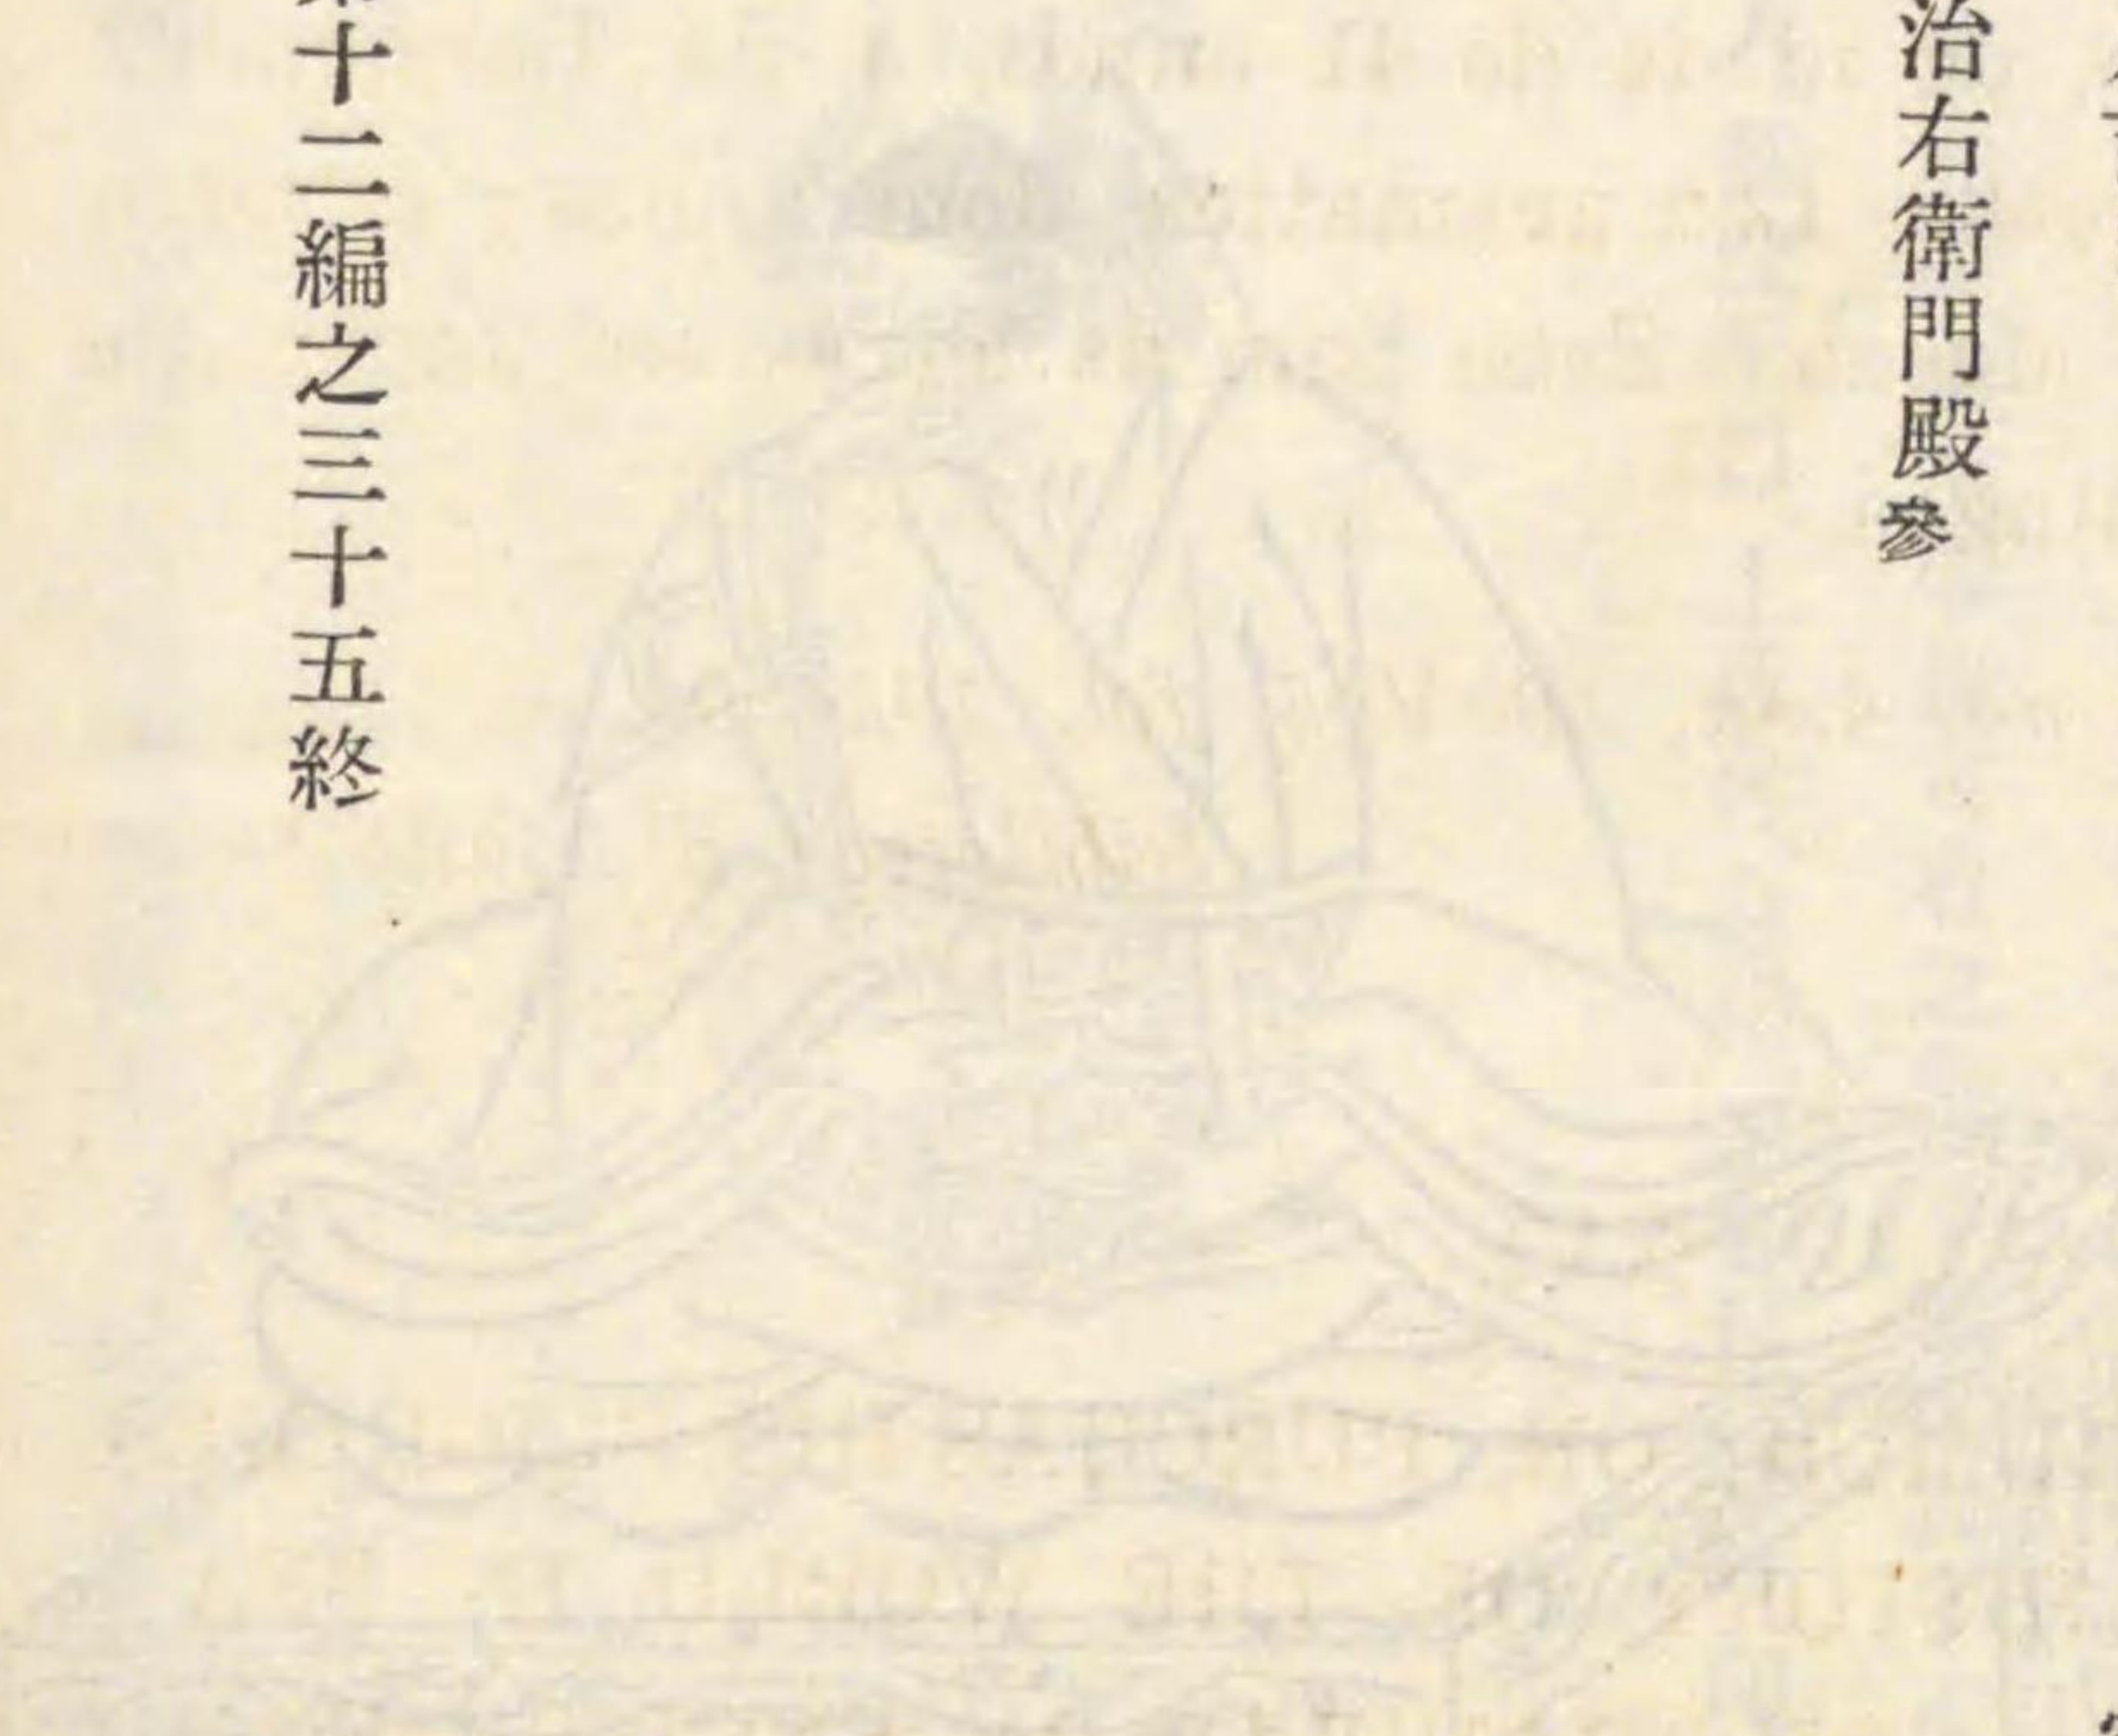 治右衛門殿參
十二編之三十五終